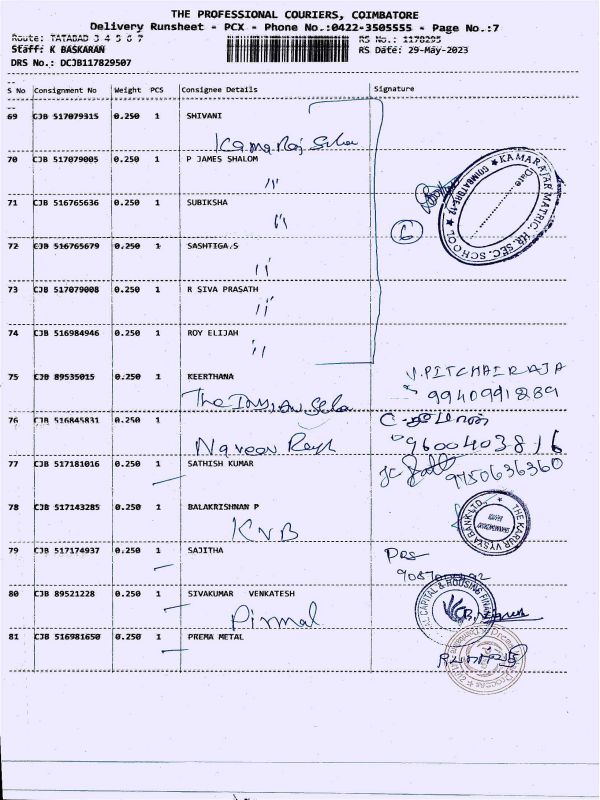 THE PROFESSIONAL COURIERS, COIMBATORE
Delivery Runsheet - PCX - Phone No.:0422-3505555 - Page No.:7
Route: TATABAD 3 4 5 6 7 RS No.: 1178295
Staff: K BASKARAN RS Date: 29-May-2023
DRS No.: DCJB117829507
S No Consignment No Weight PCS Consignee Details Signature
69 CJB 517079315 0.250 1 SHIVANI
Kamaraj
70 CJB 517079005 0.250 1 P JAMES SHALOM
"
71 CJB 516765636 0.250 1 SUBIKSHA
"
72 CJB 516765679 0.250 1 SASHTIGA.S
"
73 CJB 517079008 0.250 1 R SIVA PRASATH
"
74 CJB 516984946 0.250 1 ROY ELIJAH
"
6
KAMARAJAR MATRIC. HR. SEC. SCHOOL
COIMBATORE-12
Date
75 CJB 89535015 0.250 1 KEERTHANA V.PITCHAIRAJA
The 9940991289
76 CJB 516845831 0.250 1
Naveen 9600403816
77 CJB 517181016 0.250 1 SATHISH KUMAR 9750636360
78 CJB 517143285 0.250 1 BALAKRISHNAN P
KVB
THE KARUR VYSYA BANK LTD.
79 CJB 517174937 0.250 1 SAJITHA
80 CJB 89521228 0.250 1 SIVAKUMAR VENKATESH
Pirmal
CAPITAL & HOUSING FINANCE
81 CJB 516981650 0.250 1 PREMA METAL